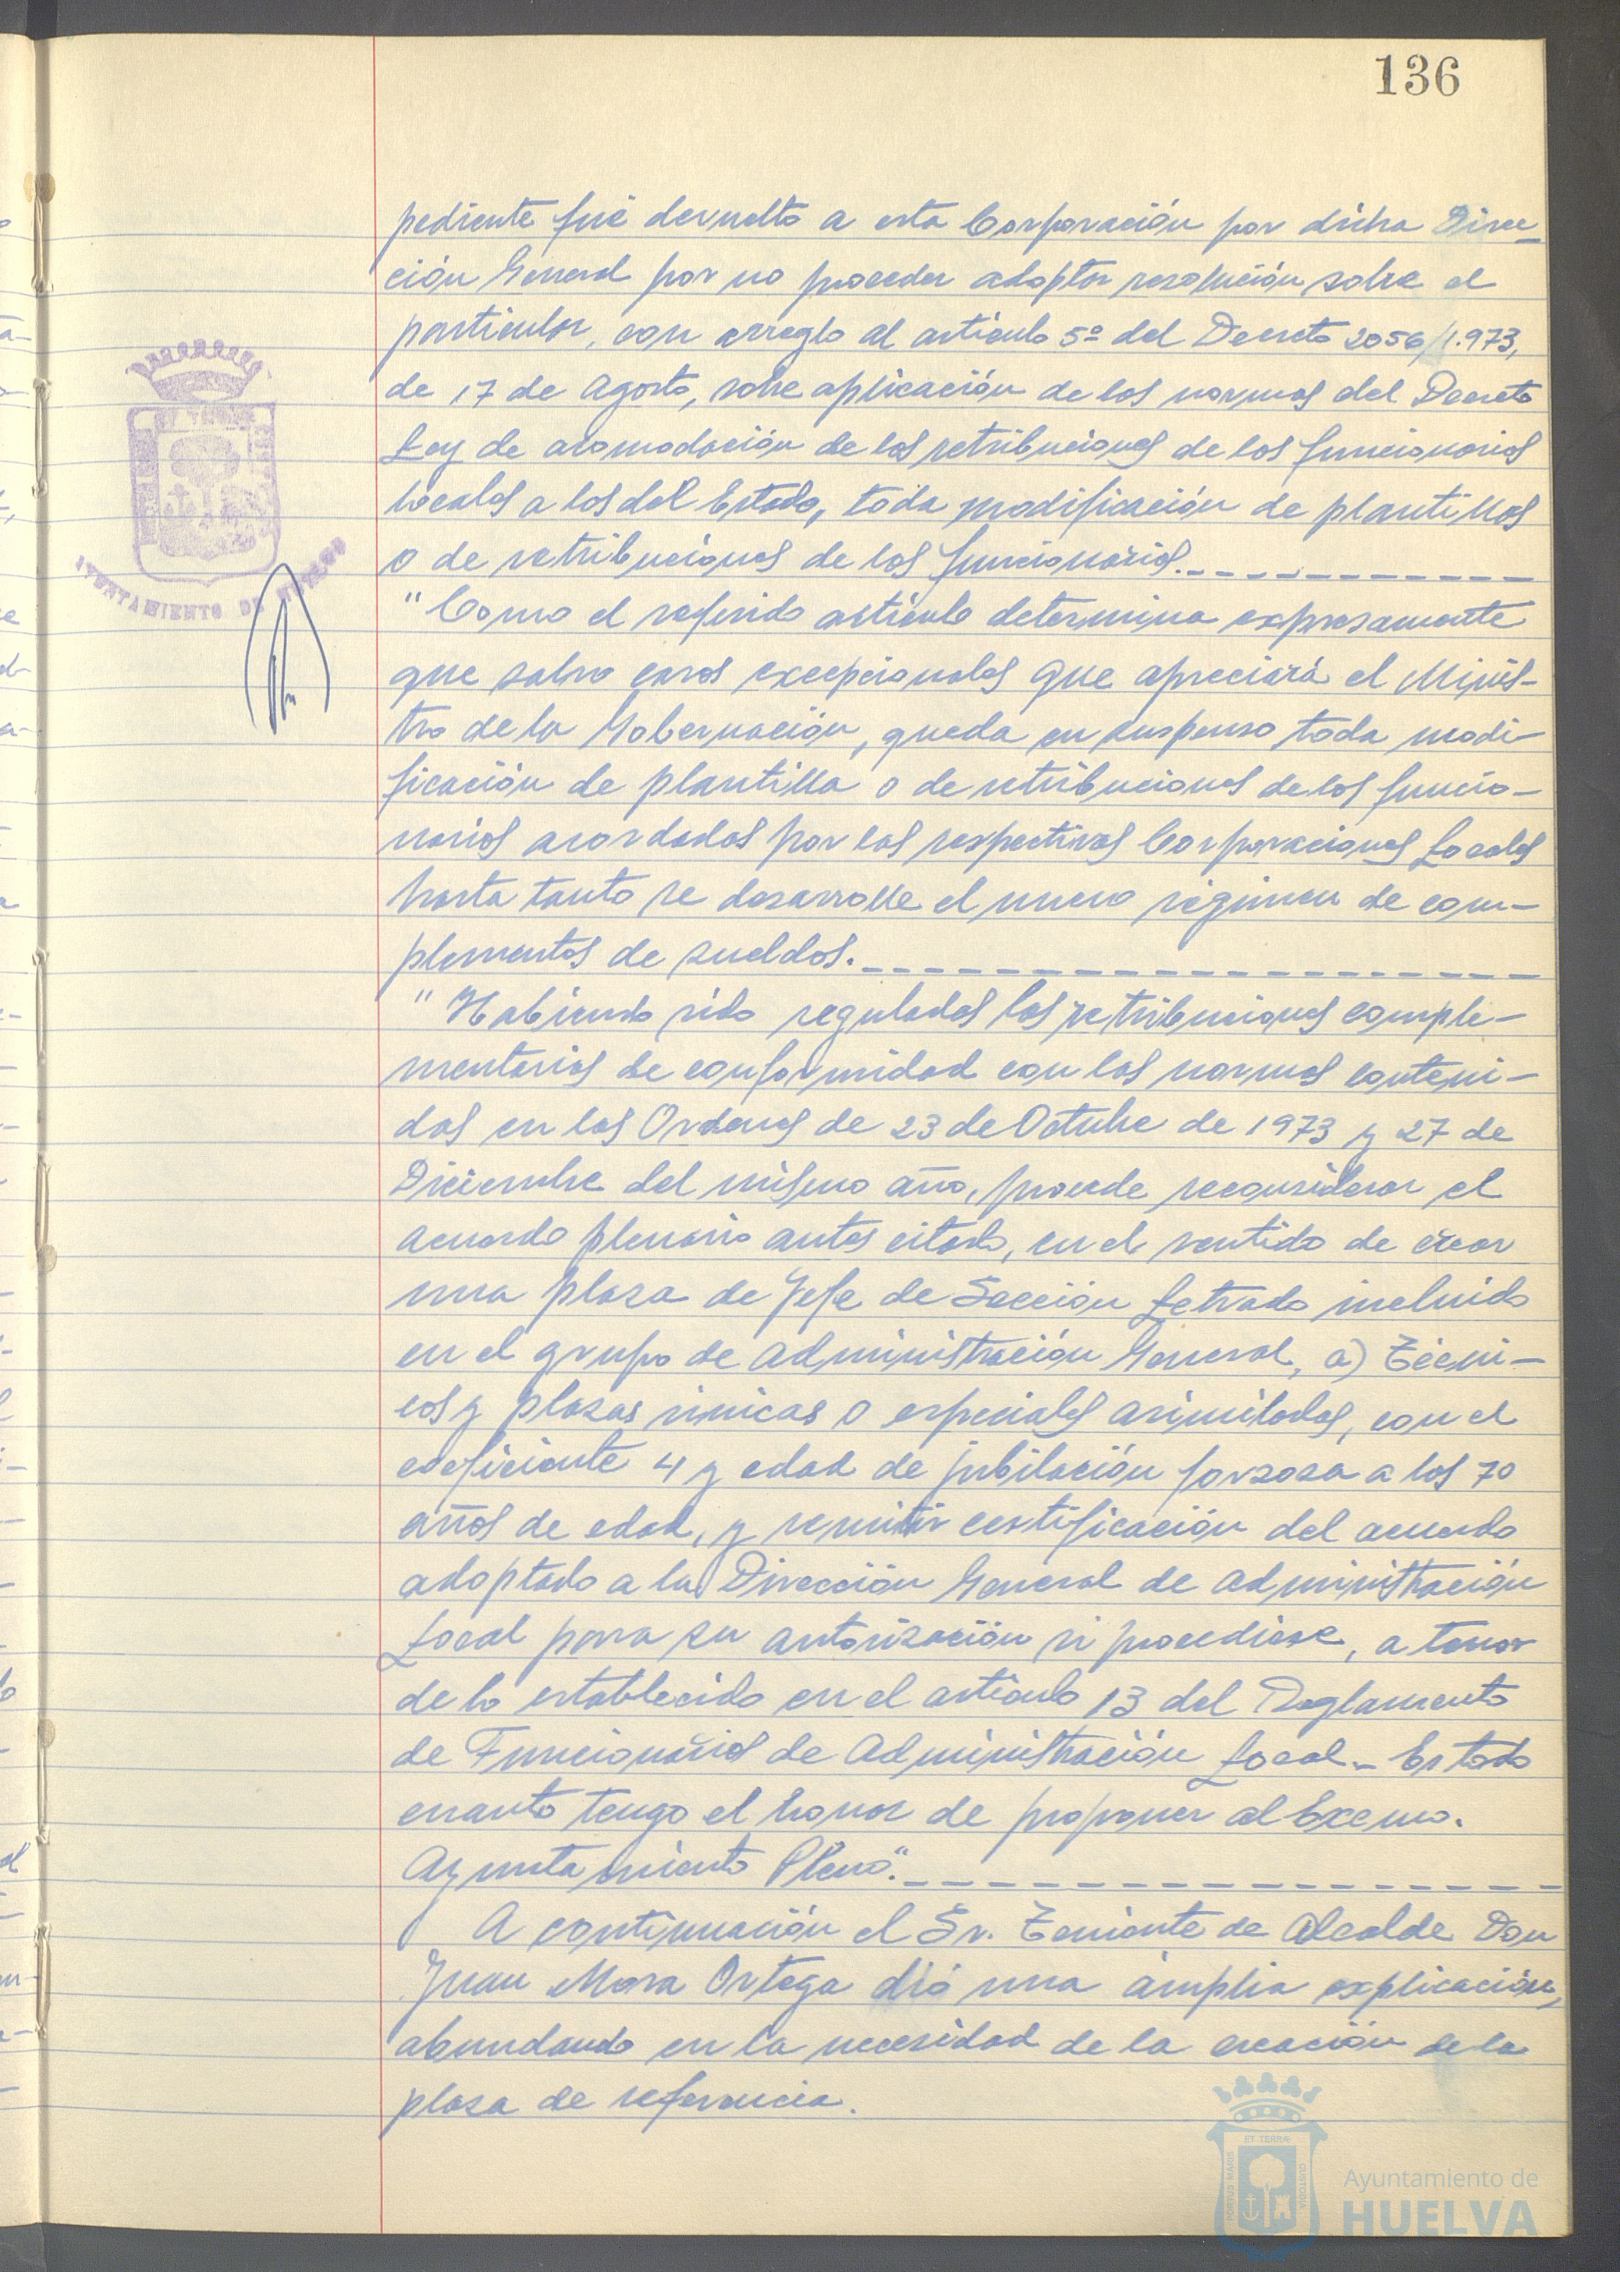 136
pediente fué devuelto a esta Corporación por dicha Direc-
ción General por no proceder adoptar resolución sobre el
particular, con arreglo al artículo 5º del Decreto 2056/1.973,
de 17 de Agosto, sobre aplicación de las normas del Decreto
Ley de acomodación de las retribuciones de los funcionarios
locales a los del Estado, toda modificación de plantillas
o de retribuciones de los funcionarios.
"Como el referido artículo determina expresamente
que salvo casos excepcionales que apreciará el Minis-
tro de la Gobernación, queda en suspenso toda modi-
ficación de plantilla o de retribuciones de los funcio-
narios acordadas por las respectivas Corporaciones Locales
hasta tanto se desarrolle el nuevo régimen de com-
plementos de sueldos.
"Habiendo sido reguladas las retribuciones comple-
mentarias de conformidad con las normas conteni-
das en las Ordenes de 23 de Octubre de 1973 y 27 de
Diciembre del mismo año, procede reconsiderar el
acuerdo plenario antes citado, en el sentido de crear
una plaza de Jefe de Sección Letrado incluido
en el grupo de Administración General, a) Técni-
cos y plazas únicas o especiales asimiladas, con el
coeficiente 4 y edad de jubilación forzosa a los 70
años de edad, y remitir certificación del acuerdo
adoptado a la Dirección General de Administración
Local para su autorización si procediese, a tenor
de lo establecido en el artículo 13 del Reglamento
de Funcionarios de Administración Local.- Es todo
cuanto tengo el honor de proponer al Excmo.
Ayuntamiento Pleno".
A continuación el Sr. Teniente de Alcalde Don
Juan Mora Ortega dió una ámplia explicación,
abundando en la necesidad de la creación de la
plaza de referencia.
AYUNTAMIENTO DE HUELVA
PORTUS MARIS
ET TERRÆ
CUSTODIA
Ayuntamiento de
HUELVA